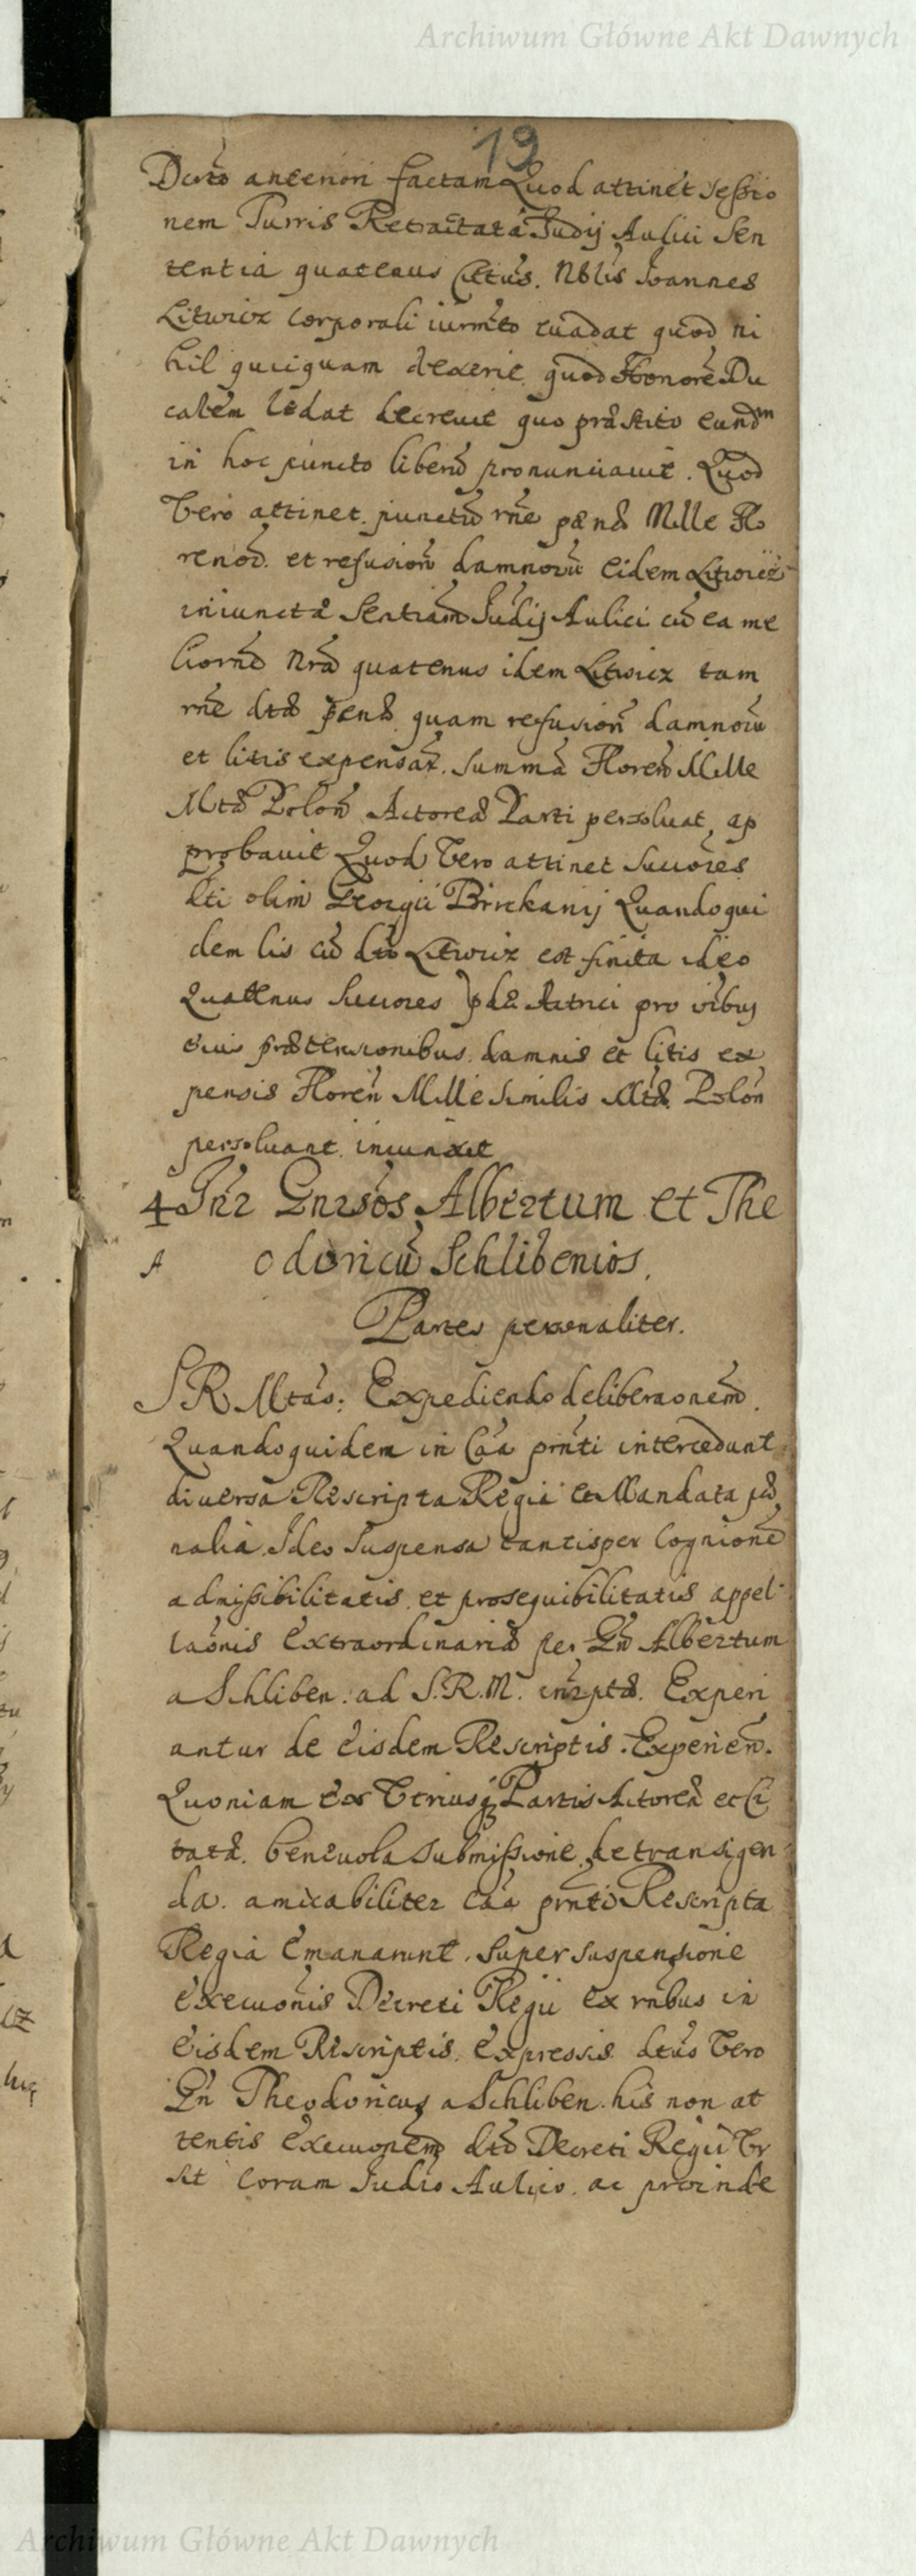 Archiwum Główne Akt Dawnych
19
Decrto anteriori factam Quod attinet sessio
nem Turris Retractata Judij Aulici Sen
tentia quatenus Citus. Nblis Joannes
Litwicz corporali iurmto evadat quod ni
hil quicquam dexerit quod Honorē Du
calem ledat decrevit quo præstito eundm
in hoc puncto liberū pronunciavit. Quod
Vero attinet punctū rne pænæ Mille Flo
renoꝝ. et refusionē damnorū eidem Litwicz
iniunctā Sentiam Judij Aulici cū ea me
liorne Nra quatenus idem Litwicz tam
rne dtæ pænæ quam refusionē damnorū
et litis expensar. summā Floren Mille
Mtæ Polon Actoreæ Parti persolvat, ap
probavit Quod Vero attinet Succores
dti olim Georgii Birckanij Quandoqui
dem lis cū dto Litwicz est finita ideo
Quatenus Succores pdæ Actrici pro oibus
suis prætensionibus damnis et litis ex
pensis Floren Mille similis Mtæ Polon
persolvant iniunxit
4 Intr Gnrsos Albertum et The
A odoricū Schlibenios.
Partes personaliter.
S R Mtas: Expediendo deliberaonem
Quandoquidem in Caa prnti intercedunt
diversa Rescripta Regia et Mandata pœ
nalia Ideo Suspensa tantisper Cognione
admissibilitatis et prosequibilitatis appel
laonis extraordinariæ per Gn Albertum
a Schliben. ad S.R.M. intrptæ. Experi
antur de eisdem Rescriptis. Experien.
Quoniam ex Vtriusq Partis Actoreæ et Ci
tatæ. benevola submissione de transigen
da. amicabiliter Caa prnti Rescripta
Regia Emanarunt. Super suspensione
execuonis Decreti Regii ex rnbus in
eisdem Rescriptis. expressis dtus Vero
Gn Theodoricus a Schliben. his non at
tentis execuonem dti Decreti Regii Vr
sit coram Judio Aulico. ac proinde
Archiwum Główne Akt Dawnych